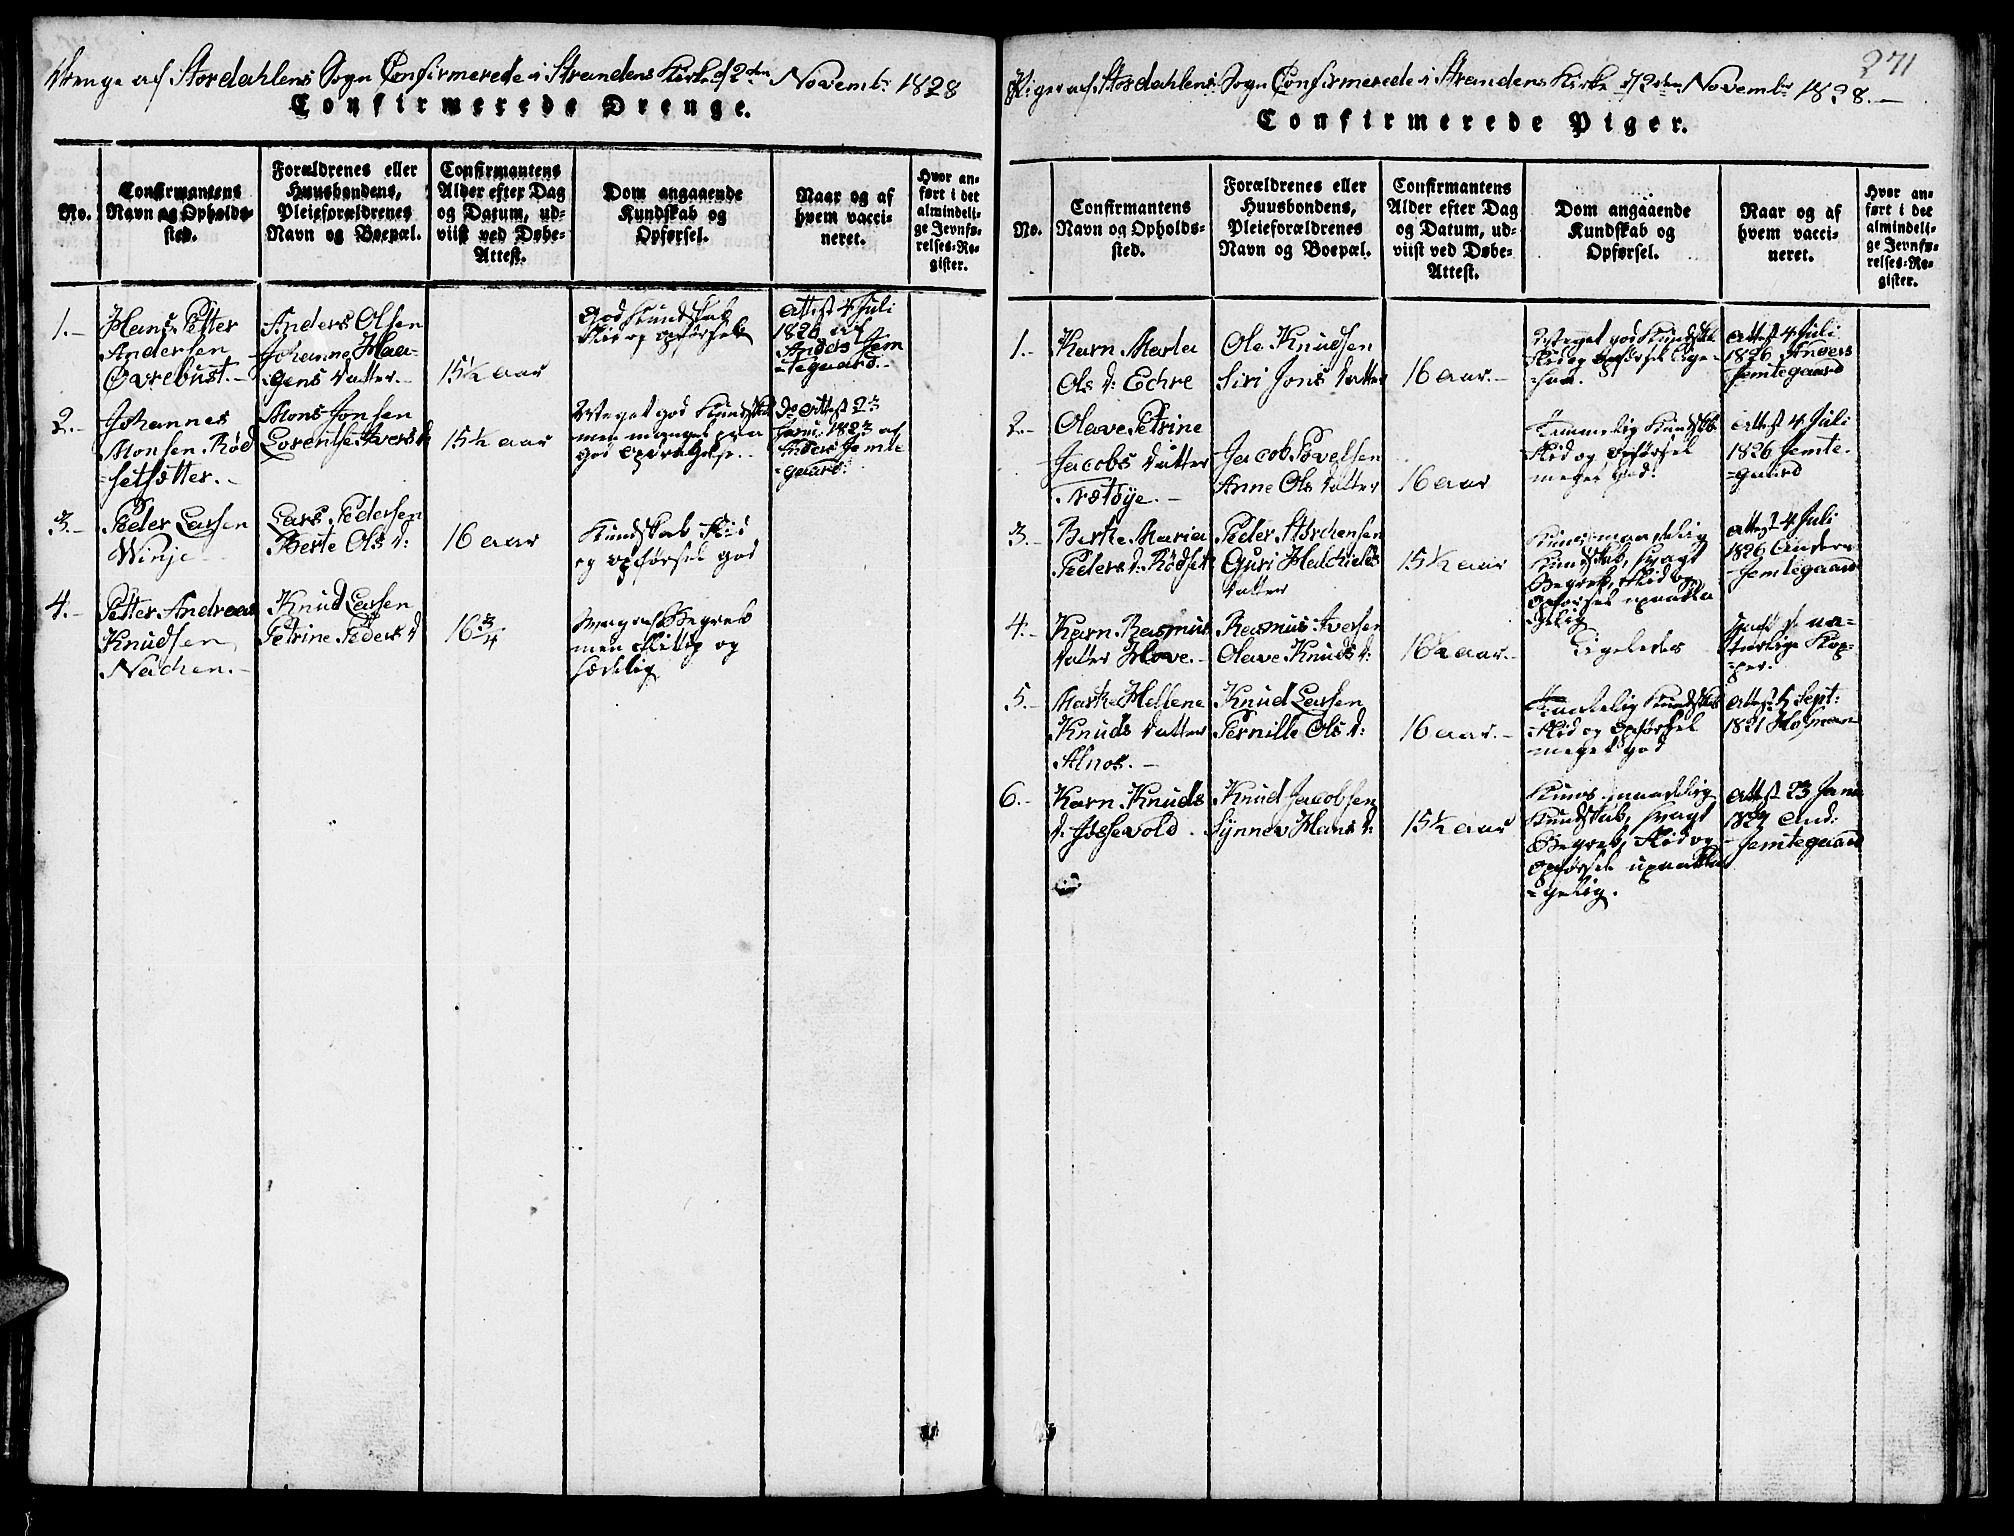 Drenge af Stordahlens Sogn Confirmerede i Strandens Kirke d 2den Novembr 1828
Confirmerede Drenge.
No.
Confirmantens
Navn og Opholds-
sted.
Forældrenes eller
Huusbondens,
Pleieforældrenes
Navn og Boepæl.
Confirmantens
Alder efter Dag
og Datum, ud-
viist ved Døbe-
Attest.
Dom angaaende
Kundskab og
Opførsel.
Naar og af
hvem vacci-
neret.
Hvor an-
ført i det
almindeli-
ge Jevnfø-
relses-Re-
gister.
1.-
Hans Petter
Andersen
Øvrebust.-
Anders Olsen
Johanne Maa-
gens Datter.-
15½ aar
God Kundskab
Flid og opførsel
Attest 4 Juli
1826 af
Anders Jem
-tegaard.-
2.-
Johannes
Monsen Rød
-setsætter.-
Mons Jonsen
Lorentse Ivers d
15½ aar
Meget god Kundskab
men mangel paa
god opdragelse.-
Anders Jemte
-gaard.
3.-
Peder Larsen
Winje
Lars Pedersen
Berte Ols d:
16 aar
Kundskab Flid
og opførsel god
4.-
Petter Andreas
Knudsen
Nachen.-
Knud Larsen
Petrine Peders d
16¾
Svag af Begreb
men flittig og
sædelig
271
Piger af Stordahlens Sogn Confirmerede i Strandens Kirke d 2den Novembr 1828.-
Confirmerede Piger.
No.
Confirmantens
Navn og Opholds-
sted.
Forældrenes eller
Huusbondens,
Pleieforældrenes
Navn og Boepæl.
Confirmantens
Alder efter Dag
og Datum, ud-
viist ved Døbe-
Attest.
Dom angaaende
Kundskab og
Opførsel.
Naar og af
hvem vacci-
neret.
Hvor an-
ført i det
almindeli-
ge Jevnfø-
relses-Re-
gister.
1.-
Karn Marta
Ols d: Echre
Ole Knudsen
Siri Jons Datter
16 aar.-
Meget god Kundskab
Flid og Opførsel lige-
-saa.
Attest 4 Juli
1826 Anders
Jemtegaard
2.-
Olave Petrine
Jacobs Datter
Jacob Povelsen
Anne Ols Datter
16 aar
Temmelig Kundskab
Flid og Opførsel
meget god.
Attest 4 Juli
1826 Jemte-
-gaard
3.-
Berthe Maria
Peders d: Rødset
Peder Storchensen
Guri
Datter
15½ aar
maadelig
Kundskab, svagt
Begreb, Flid og
Opførsel upaakla
-gelig
Attest 4 Juli
1826 Anders
Jemtegaard
4.-
Karn Rasmus
Datter Hove.-
Rasmus Iversen
Olave Knuds d:
16½ aar.-
Ligeledes
Havt de na-
-turlige Kop-
-per.
5.-
Marthe Hellene
Knuds Datter
Alnos.-
Knud Larsen
Pernille Ols d:
16 aar.-
Kundskab
Flid og Opførsel
meget god
Attest Sept:
1821
6.-
Karn Knuds
d: Jssevold.
Knud Jacobsen
Synnev Hans d:
15½ aar
maadelig
Kundskab, svagt
Begreb, Flid og
Opførsel upaakla
-gelig.
Attest 23 Juni
And:
Jemtegaard